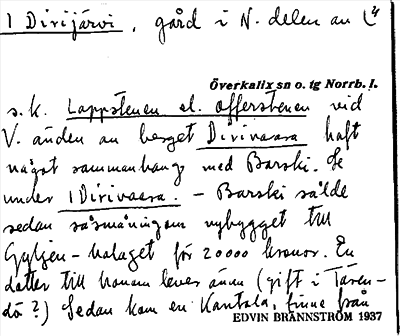 1 Dirijärvi, gård i N. delen av L4
Överkalix sn o. tg Norrb. l.
s.k. Lappstenen el. offerstenen vid
V. änden av berget Dirivaara haft
något sammanhang med Barski. Se
under 1 Dirivaara. – Barski sålde
sedan såsmåningom nybygget till
Gyljen-bolaget för 20000 kronor. En
dotter till honom lever ännu (gift i Tären-
dö?) Sedan kom en Kantola, finne från
EDVIN BRÄNNSTRÖM 1937